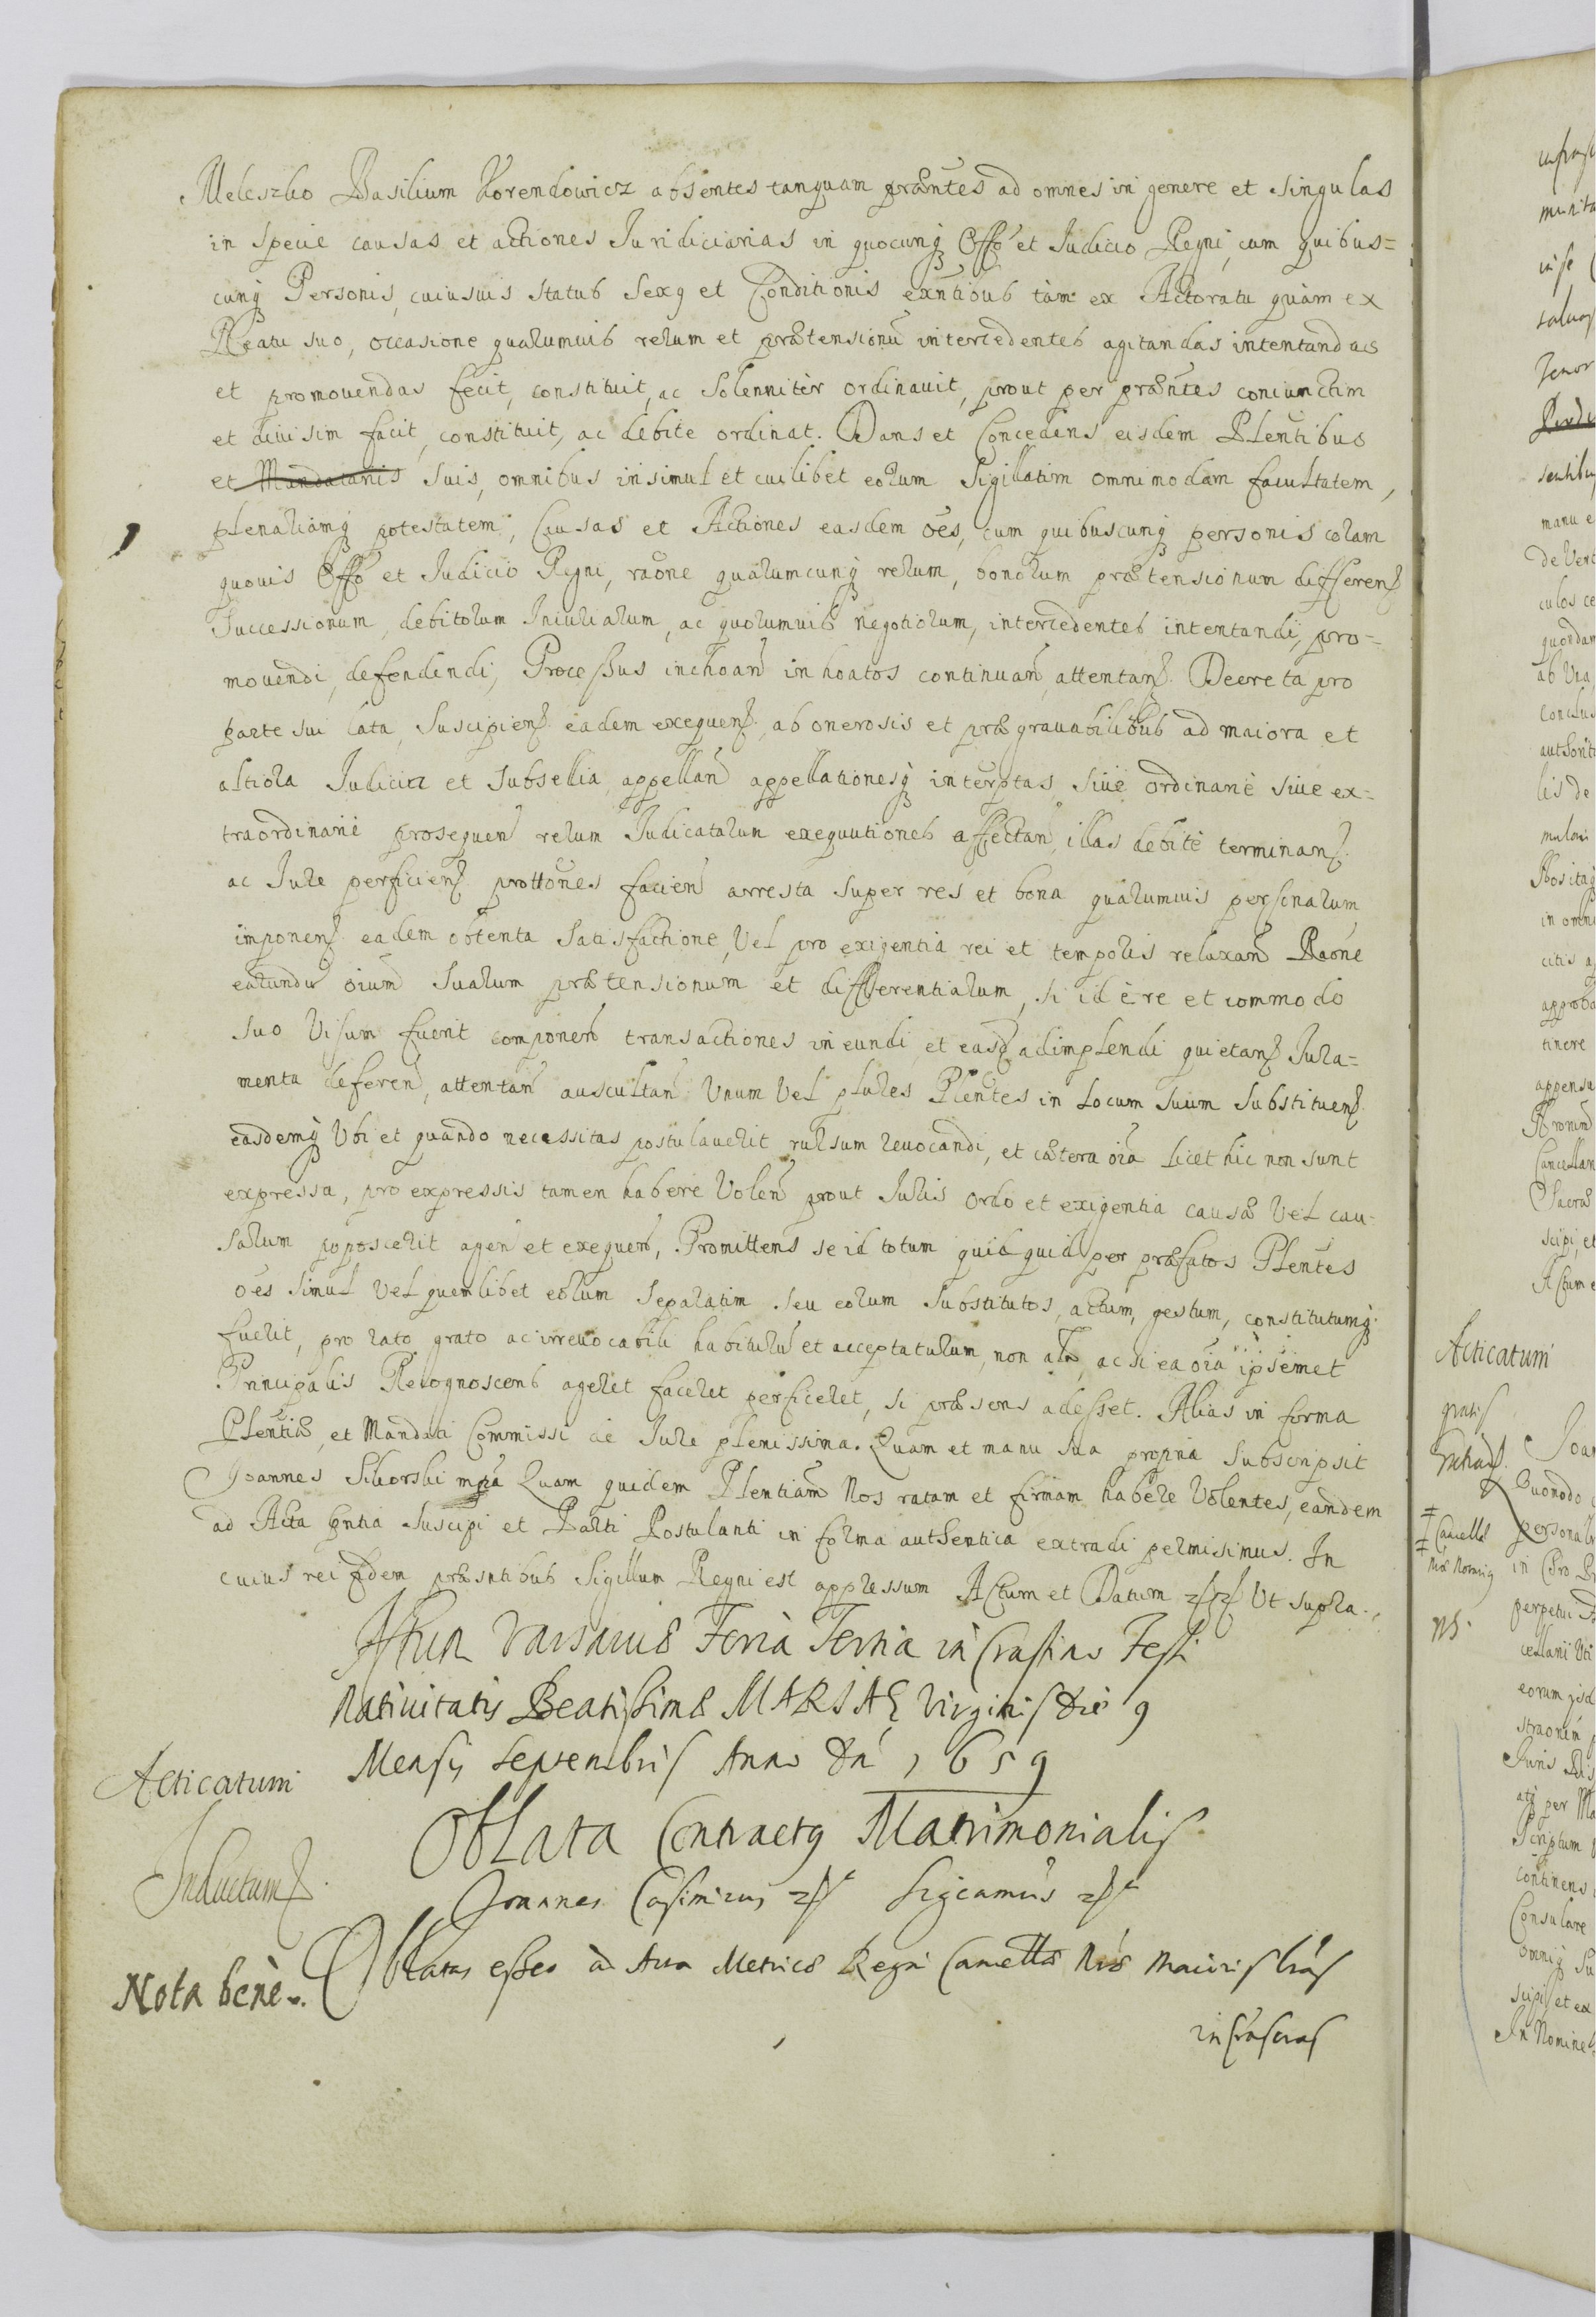 Meleszko Basilium Korendowicz absentes tanquam præntes ad omnes in genere et singulas
in specie causas et actiones Juridiciarias in quocunq Offo et Judicio Regni, cum quibus=
cunq Personis, cuiusuis status Sexq et Conditionis exntibus tàm ex Actoratu quàm ex
Reatu suo, occasione quarumuis rerum et prætensionu intercedentes agitandas intentandas
et promouendas fecit, constituit, ac Solenniter ordinauit, prout per præntes coniunctim
et diuisim facit, constituit, ac debite ordinat. Dans et Concedens eisdem Plentibus
et Mandatariis suis, omnibus insimul et cuilibet eorum Sigillatim omnimodam facultatem,
plenariamq potestatem, Causas et Actiones easdem oes, cum quibuscunq personis coram
quouis Offo et Judicio Regni, raone quarumcunq rerum, bonorum prætensionum differen
Successionum, debitorum Iniuriarum, ac quorumuis negotiorum, intercedentes intentandi, pro=
mouendi, defendendi, Processus inchoan inhoatos continuan, attentan. Decreta pro
parte sui lata, Suscipien eadem exequen, ab onerosis et prægrauabilibus ad maiora et
altiora Judicia et Subsellia appellan appellationesq interptas, siue ordinariè siue ex=
traordinariè prosequen rerum Judicatarum exequutiones affectan, illas debitè terminan
ac Jure perficien prottones facien arresta super res et bona quarumuis personarum
imponen eadem obtenta Satisfactione, Vel pro exigentia rei et temporis relaxan Raone
earundu oium Suarum prætensionum et differentiarum, si id ère et commodo
suo Visum fuerit componen transactiones ineundi et easq adimplendi quietan Jura=
menta deferen, attentan auscultan Unum Vel plures Plentes in Locum Suum Substituen
easdemq Ubi et quando necessitas postulauerit rursum reuocandi, et cætera oia licet hic non sunt
expressa, pro expressis tamen habere Volen prout Juris ordo et exigentia causæ Vel cau=
sarum poposcerit agen et exequen, Promittens se id totum quidquid per præfatos Plentes
oes Simul Vel quemlibet eorum Separatim seu eorum Substitutos, actum, gestum, constitutumq
fuerit, pro rato grato ac irreuocabili habituru et acceptaturum, non alr, ac si ea oia ipsemet
Principalis Recognoscens ageret faceret perficeret, si præsens adesset. Alias in forma
Plentiæ, et Mandati Commissi de Jure plenissima. Quam et manu sua propria Subscripsit
Joannes Sikorski mpa Quam quidem Plentiam Nos ratam et firmam habere Volentes, eandem
ad Acta pntia Suscipi et Parti Postulanti in forma authentica extradi permisimus. In
cuius rei fidem præsntibus Sigillum Regni est appressum Actum et Datum Ut supra.
Actum Varsauiæ Feria Tertia in Crastino Festi
Natiuitatis Beatissimæ MARIAE Virginis die 9
Mensis Septembris Anno Dni 1659
Acticatum
Oblata Contractq Matrimonialis
Inductum
Joannes Casimirus Sigcamus
Nota benè.
Oblatas esse ad Acta Metricæ Regni Cancellæ Nræ Maioris lras
infrascras
Acticatum
gratis
Cancell